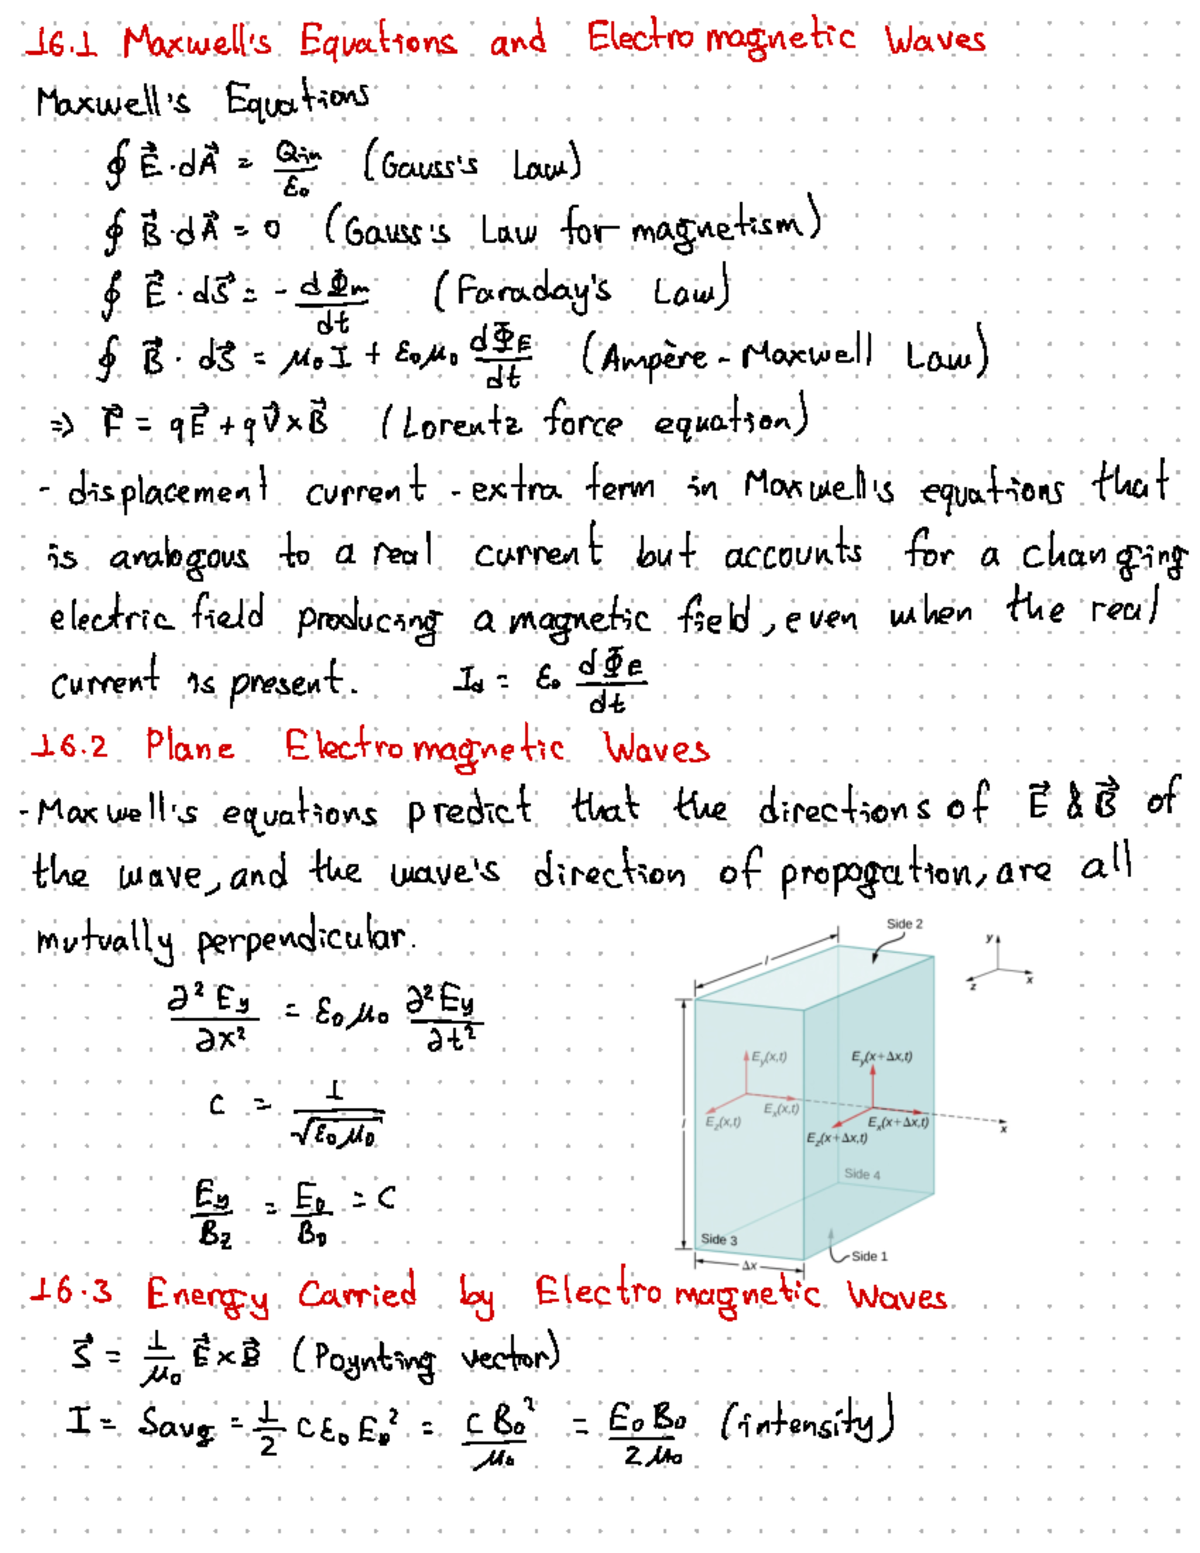 16.1 Maxwell's Equations and Electromagnetic Waves
Maxwell's Equations
∮ E⃗·dA⃗ = Qin/ε₀ (Gauss's Law)
∮ B⃗·dA⃗ = 0 (Gauss's Law for magnetism)
∮ E⃗·dS⃗ = - dΦm/dt (Faraday's Law)
∮ B⃗·dS⃗ = μ₀I + ε₀μ₀ dΦE/dt (Ampère-Maxwell Law)
⇒ F⃗ = qE⃗ + qV⃗×B⃗ (Lorentz force equation)
- displacement current - extra term in Maxwell's equations that
is analogous to a real current but accounts for a changing
electric field producing a magnetic field, even when the real
current is present. Id = ε₀ dΦE/dt
16.2 Plane Electromagnetic Waves
- Maxwell's equations predict that the directions of E⃗ & B⃗ of
the wave, and the wave's direction of propogation, are all
mutually perpendicular.
∂²Ey/∂x² = ε₀μ₀ ∂²Ey/∂t²
c = 1/√ε₀μ₀
Ey/Bz = E₀/B₀ = c
Side 2
l
y
z
x
l
Ey(x,t)
Ex(x,t)
Ez(x,t)
Ey(x+Δx,t)
Ex(x+Δx,t)
Ez(x+Δx,t)
x
Side 4
Side 3
Side 1
Δx
16.3 Energy Carried by Electromagnetic Waves
S⃗ = 1/μ₀ E⃗×B⃗ (Poynting vector)
I = Savg = 1/2 cε₀E₀² = cB₀²/μ₀ = E₀B₀/2μ₀ (intensity)